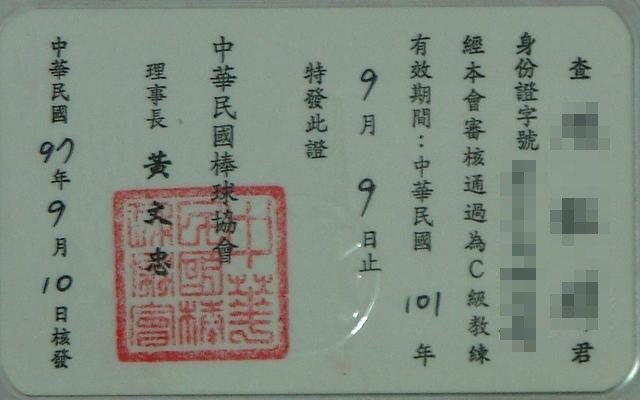 查 君
身份證字號
經本會審核通過為C級教練
有效期間：中華民國 101 年
9月9日止
特發此證
中華民國棒球協會
理事長 黃文忠
中華民國97年9月10日核發
中華民國棒球協會